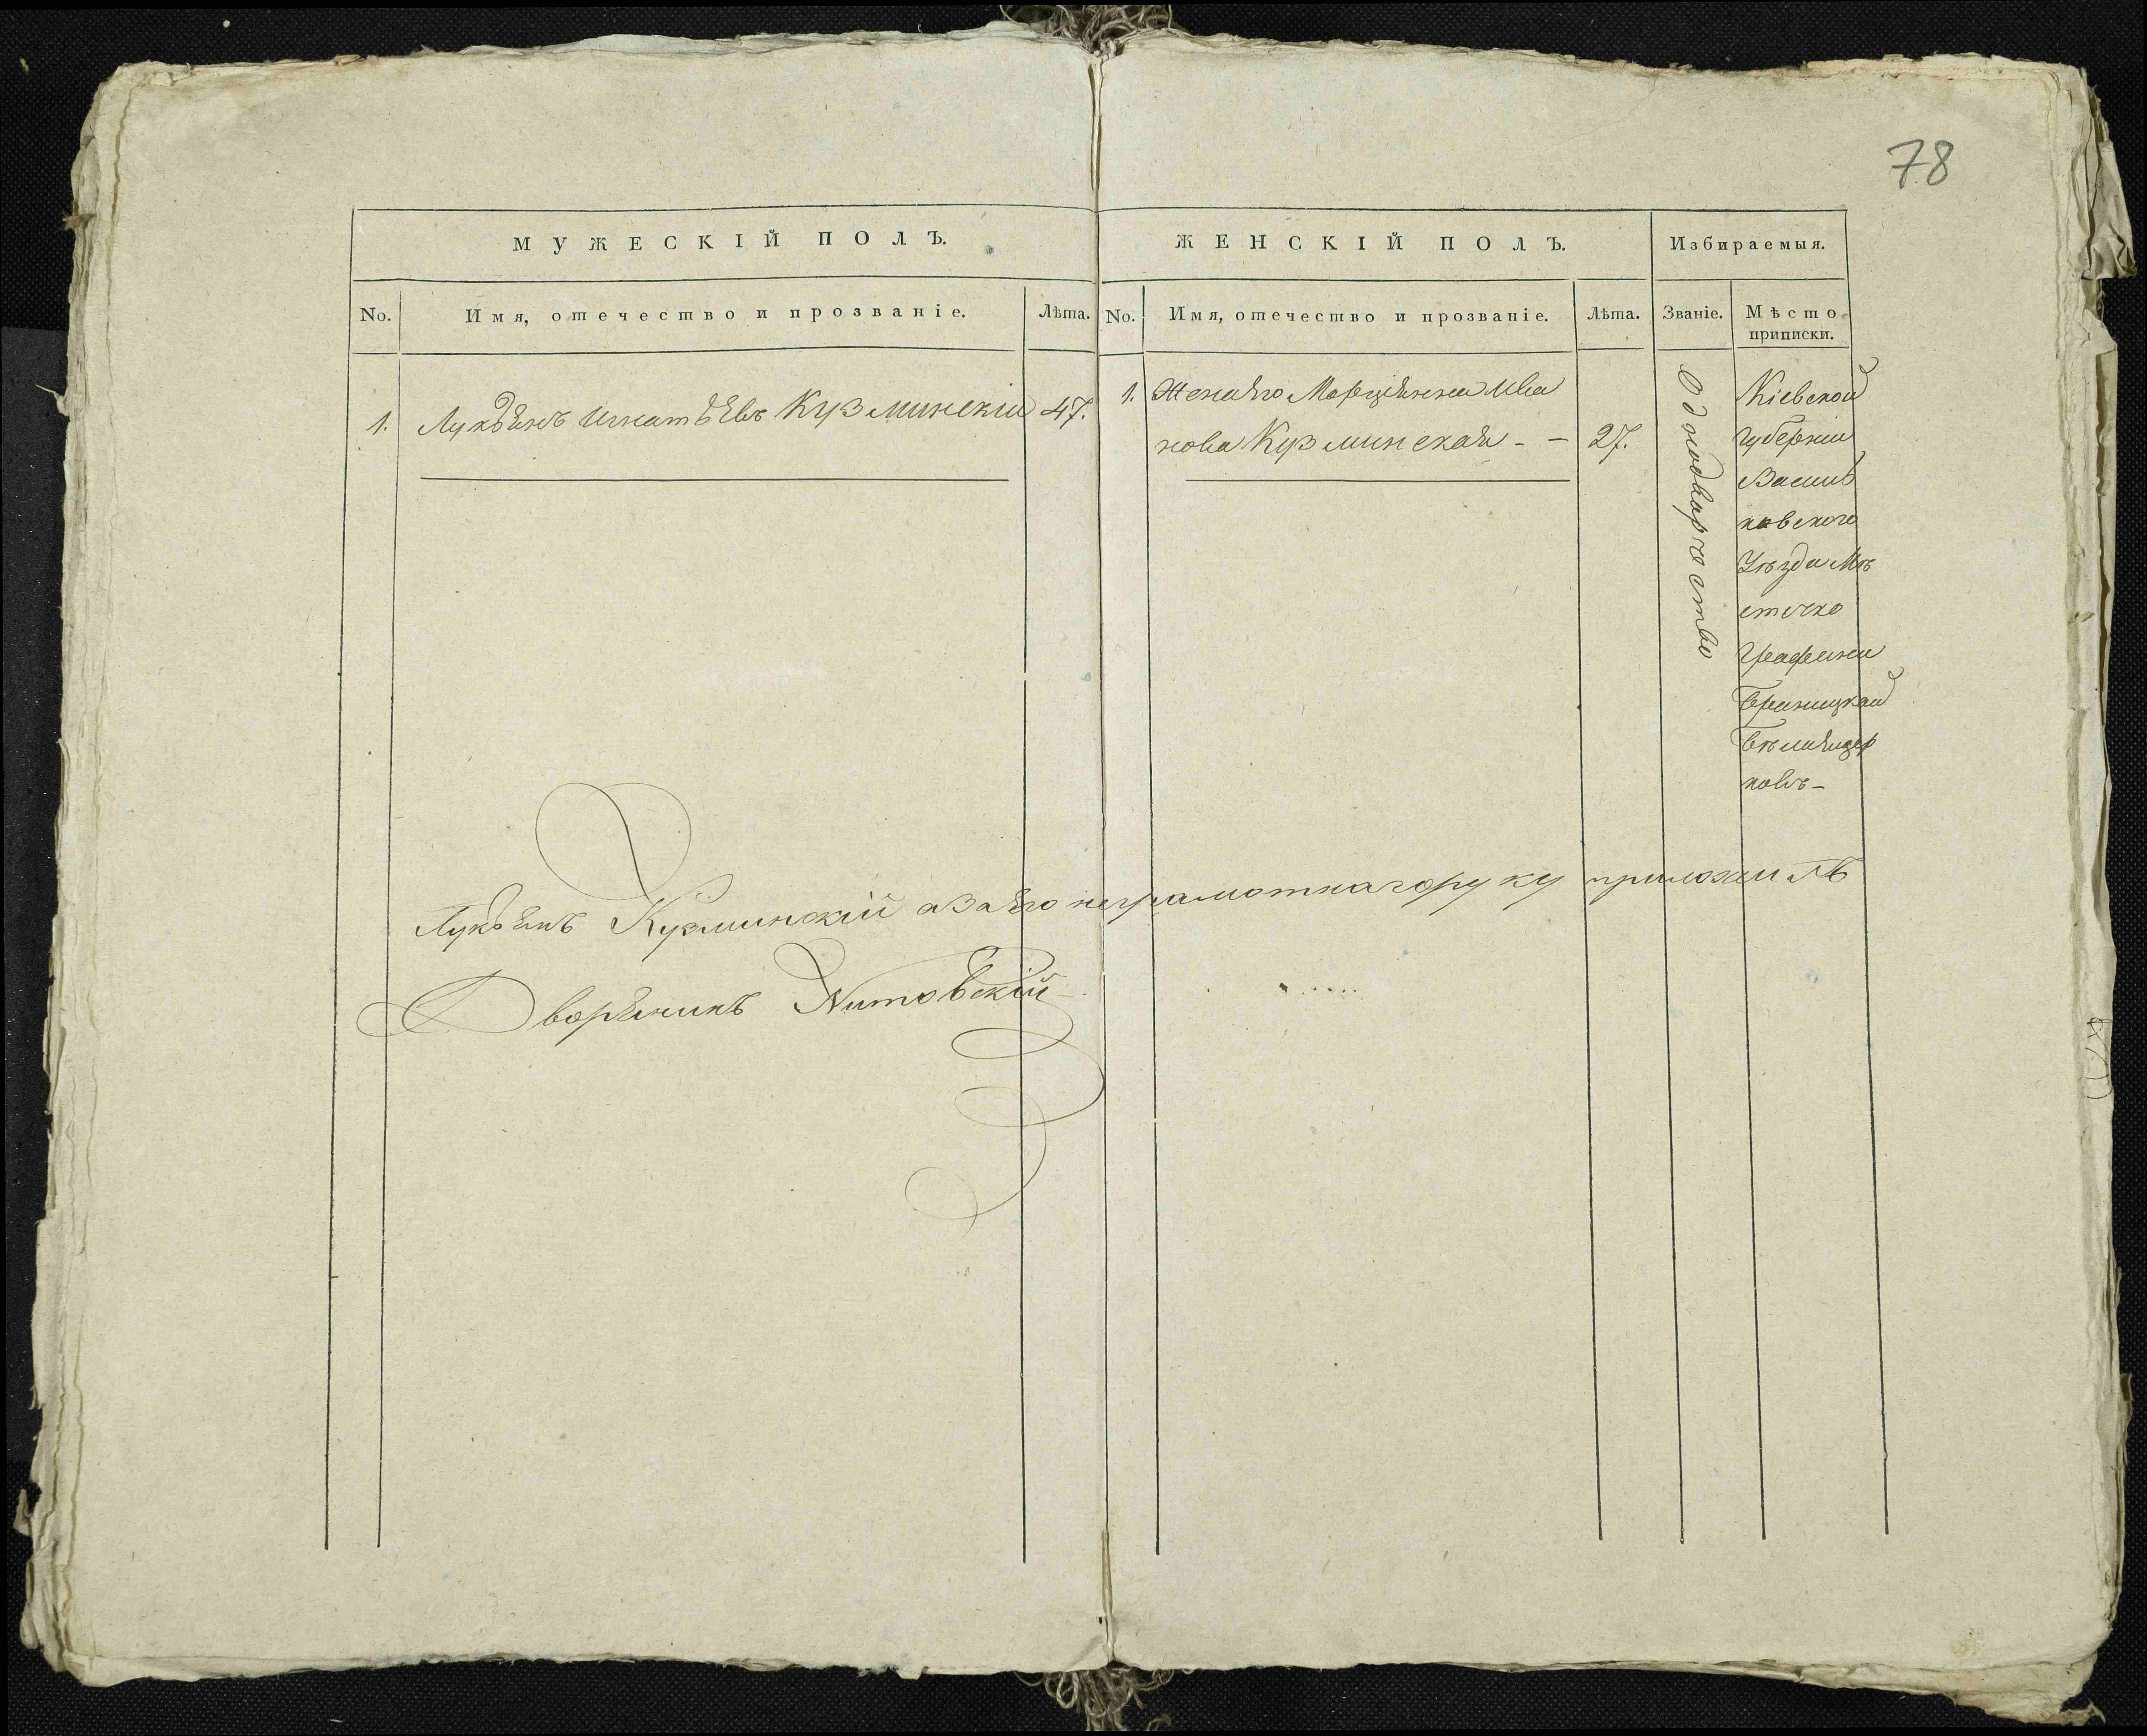 78
МУЖЕСКІЙ ПОЛЪ.
ЖЕНСКІЙ ПОЛЪ.
Избираемыя.
No.
Имя, отечество и прозваніе.
Лѣта.
No.
Имя, отечество и прозваніе.
Лѣта.
Званіе.
Мѣсто
приписки.
1.
Лукъянъ Игнатъевъ Кузминскій
47.
1.
Жена его Марціянна Ива
нова Кузминская - -
27.
Однодворчество
Кіевской
губерніи
Василь
ковского
Уѣзда Мѣ
стечко
Графини
Браницкой
Бѣлая цер
ковъ-
Лукъянъ Кузминскій а за его неграмотнаго руку приложилъ
Дворянинъ